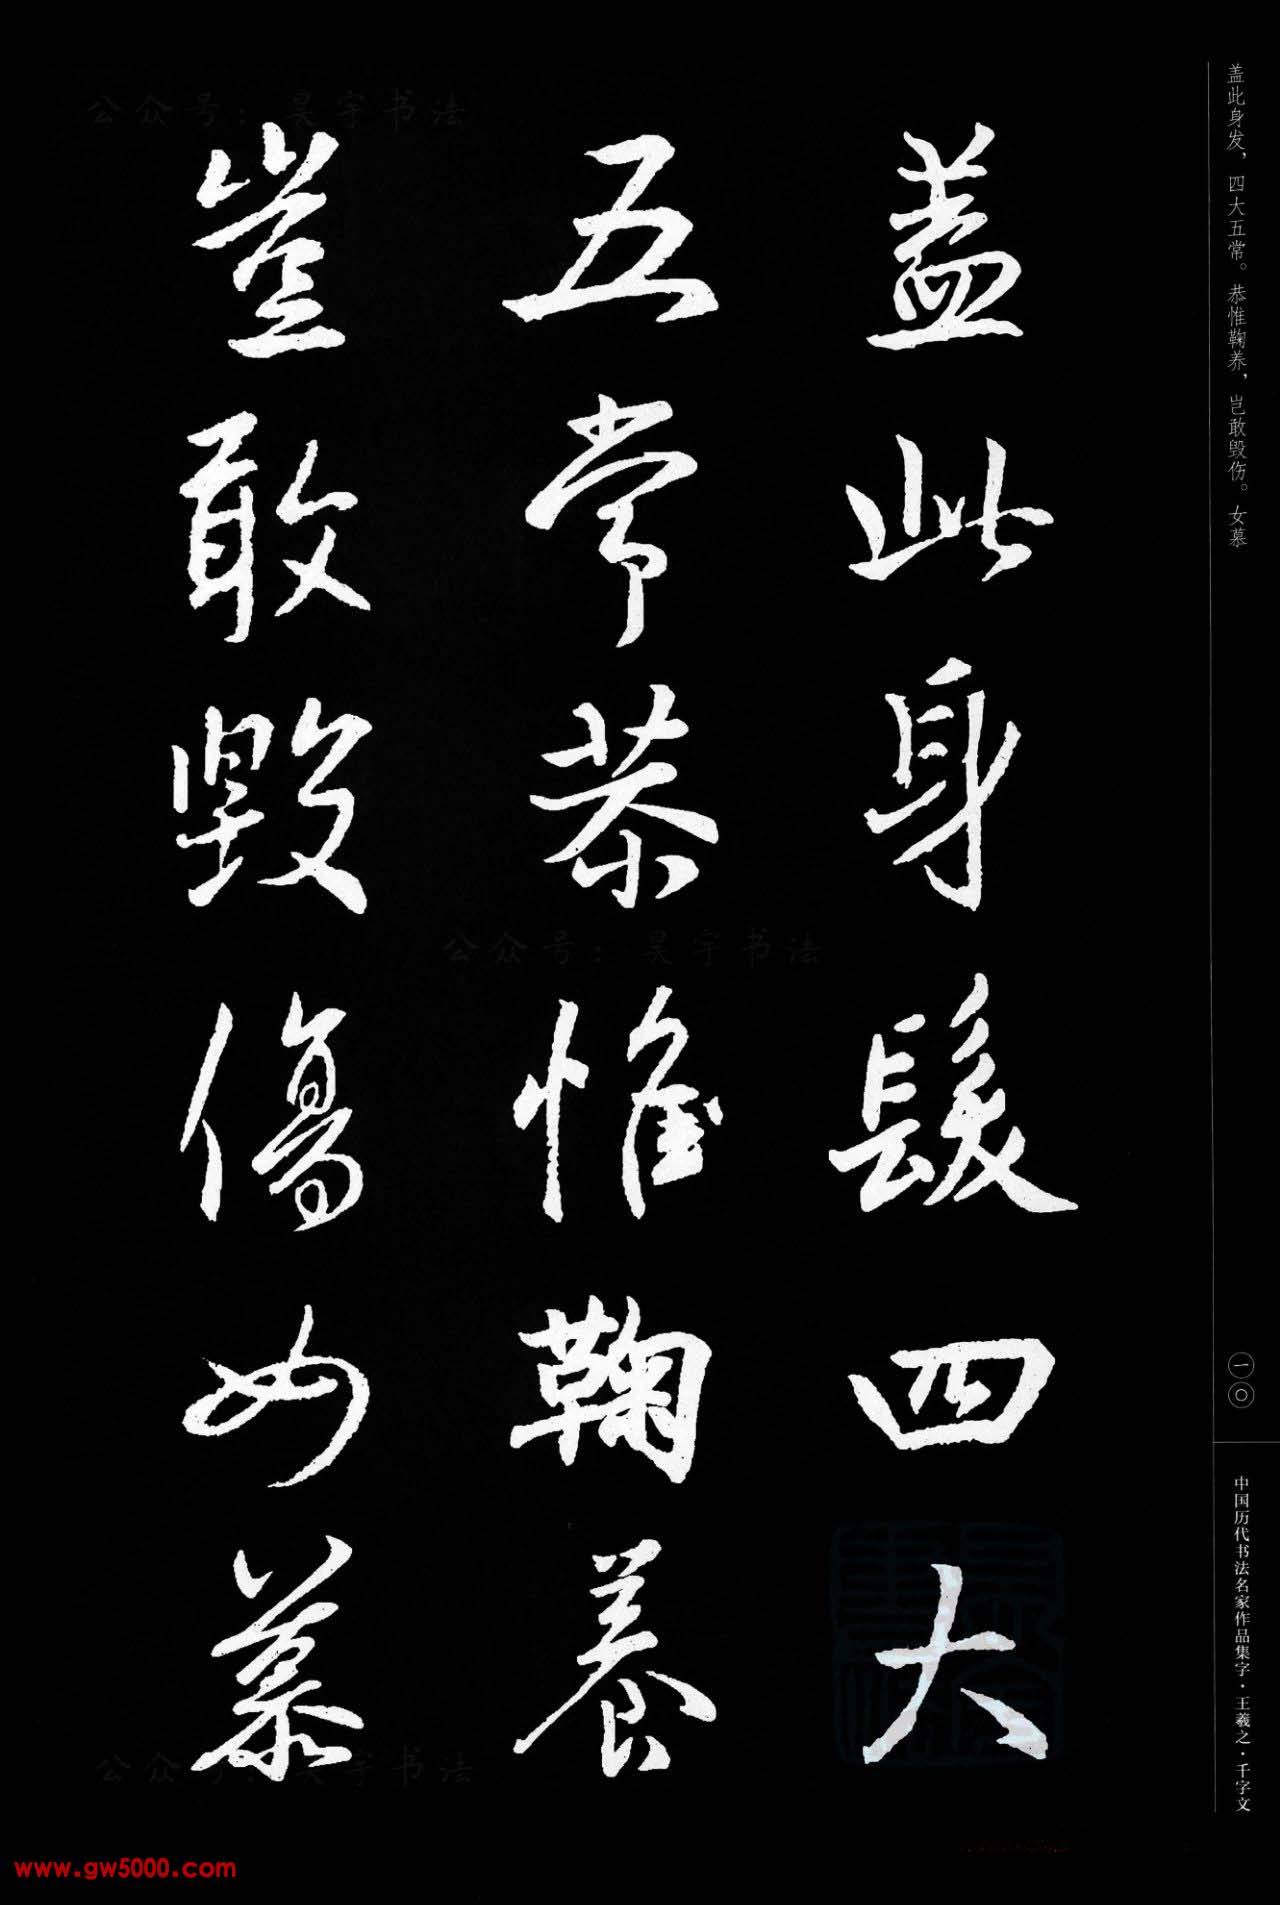 盖此身发，四大五常。恭惟鞠养，岂敢毁伤。女慕
一〇
中国历代书法名家作品集字·王羲之·千字文
蓋此身髮四大
五常恭惟鞠養
豈敢毀傷女慕
公众号：昊宇书法
公众号：昊宇书法
公众号：昊宇书法
www.gw5000.com